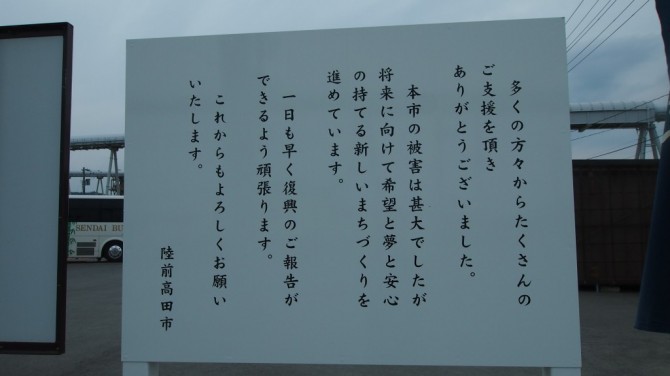 多くの方々からたくさんの
ご支援を頂き
ありがとうございました。
本市の被害は甚大でしたが
将来に向けて希望と夢と安心
の持てる新しいまちづくりを
進めています。
一日も早く復興のご報告が
できるよう頑張ります。
これからもよろしくお願い
いたします。
陸前高田市
SENDAI BU